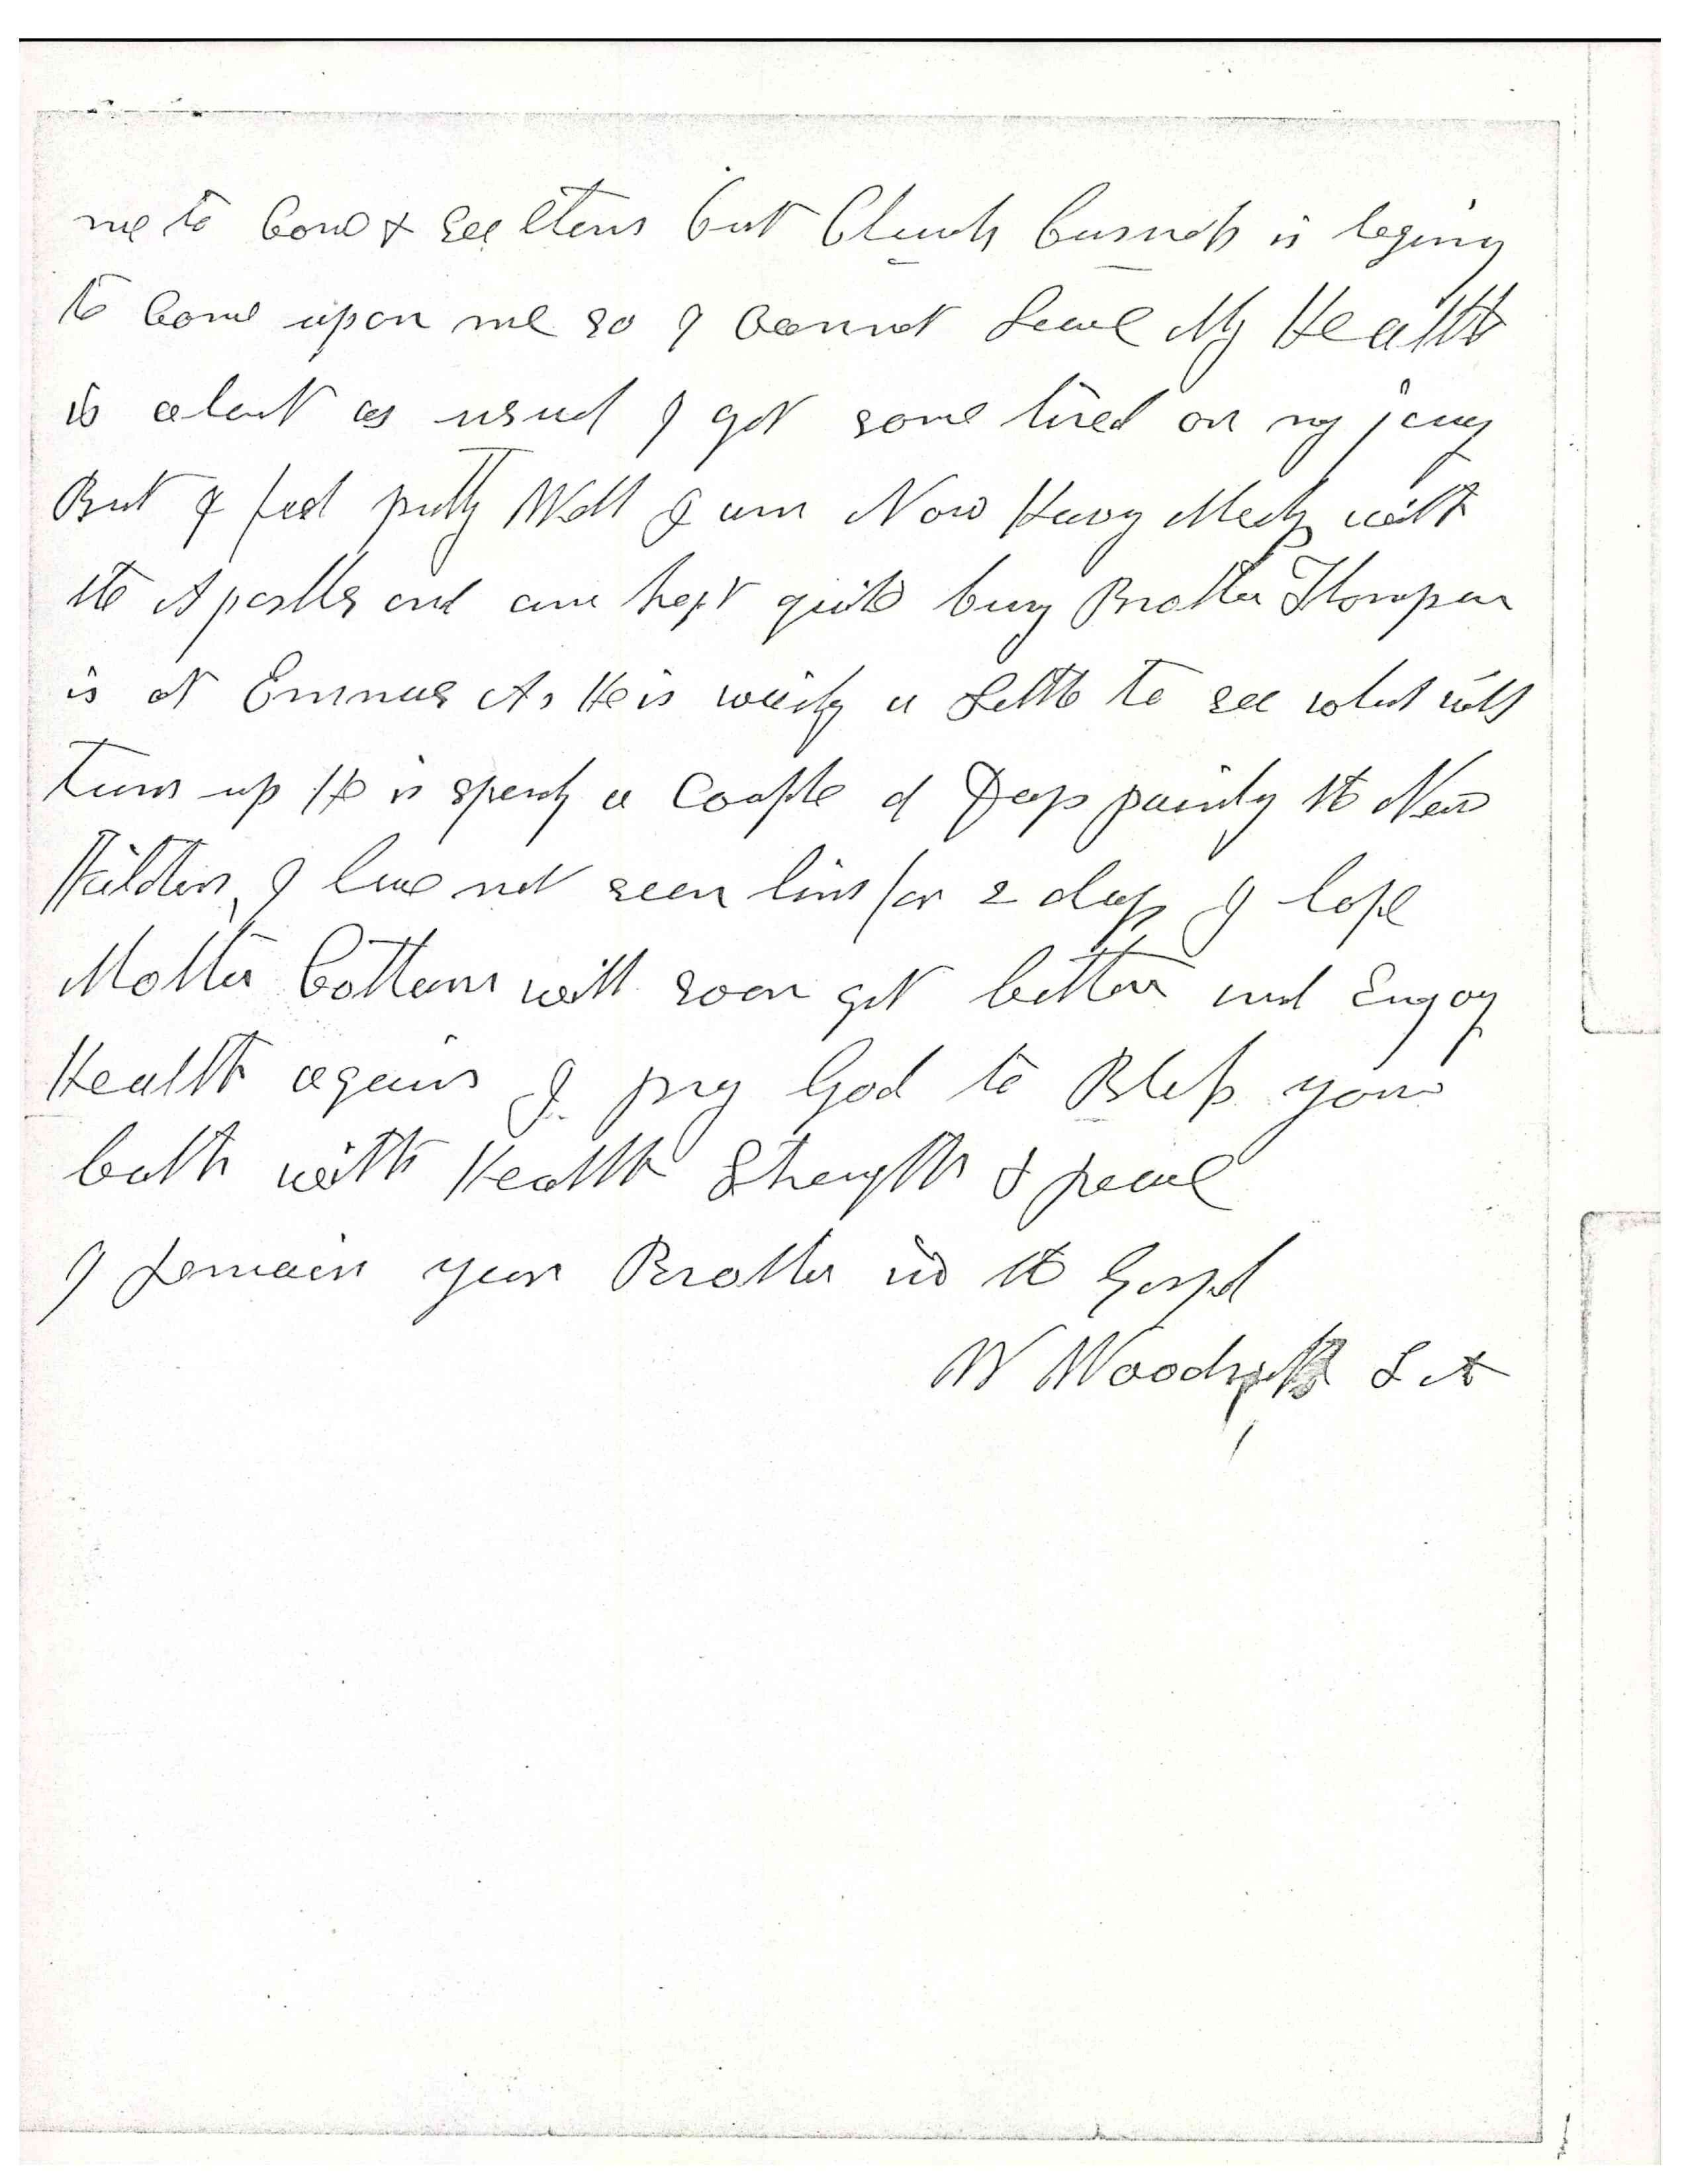 me to Come & see them but Church business is begining
to Come upon me so I cannot Leave My Health
is about as usual I got some tired on my
But I feel pretty Well I am Now Having Meeting with
the Apostles and am kept quite busy Brother Thompson
is at Emmas As He is waiting a Little to see what will
turn up He is spending a Couple of Days painting the New
I have not seen him for 2 days I hope
Mother Cottam will soon get better and Enjoy
Health again I pray God to Bless you
both with Health Strength & peace
I remain your Brother in the Gospel
W Woodruff